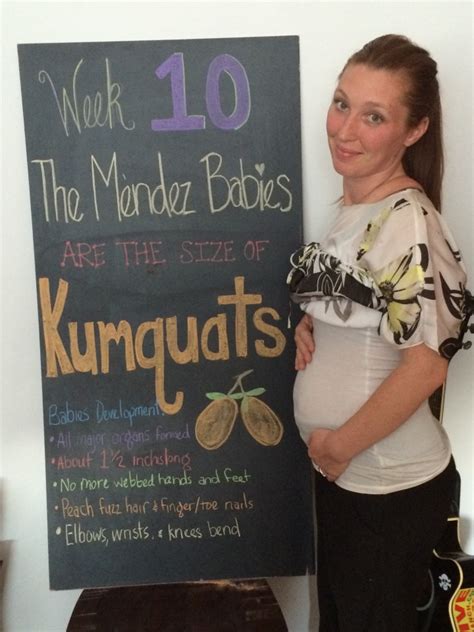 Week 10
The Méndez Babies
ARE THE SIZE OF
Kumquats
Babies Development
• All major organs formed
• About 1 1/2 inchslong
• No more webbed hands and feet
• Peach fuzz hair & finger/toe nails
• Elbows, wrists, & knees bend
LIVE